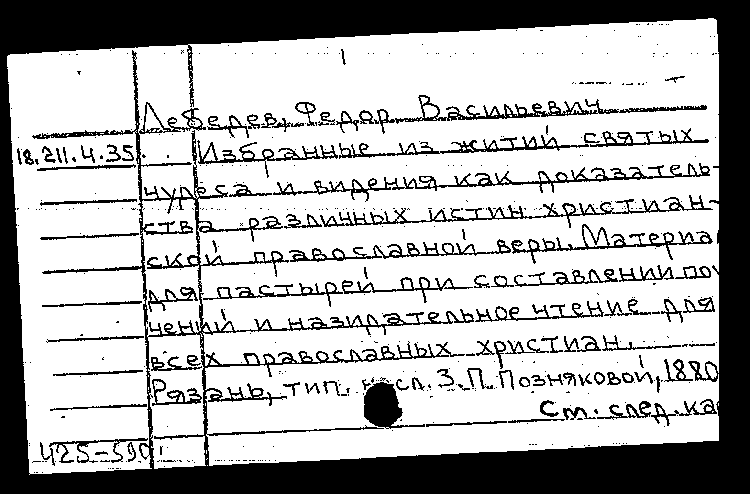 Лебедев, Федор Васильевич
18.211.4.35. Избранные из житий святых
чудеса и видения как доказатель-
ства различных истин христиан-
ской православной веры. Материа
для пастырей при составлении поу
чений и назидательное чтение для
всех православных христиан.
Рязань, тип. насл. З.П. Позняковой, 1880
См. след. ка
425-590